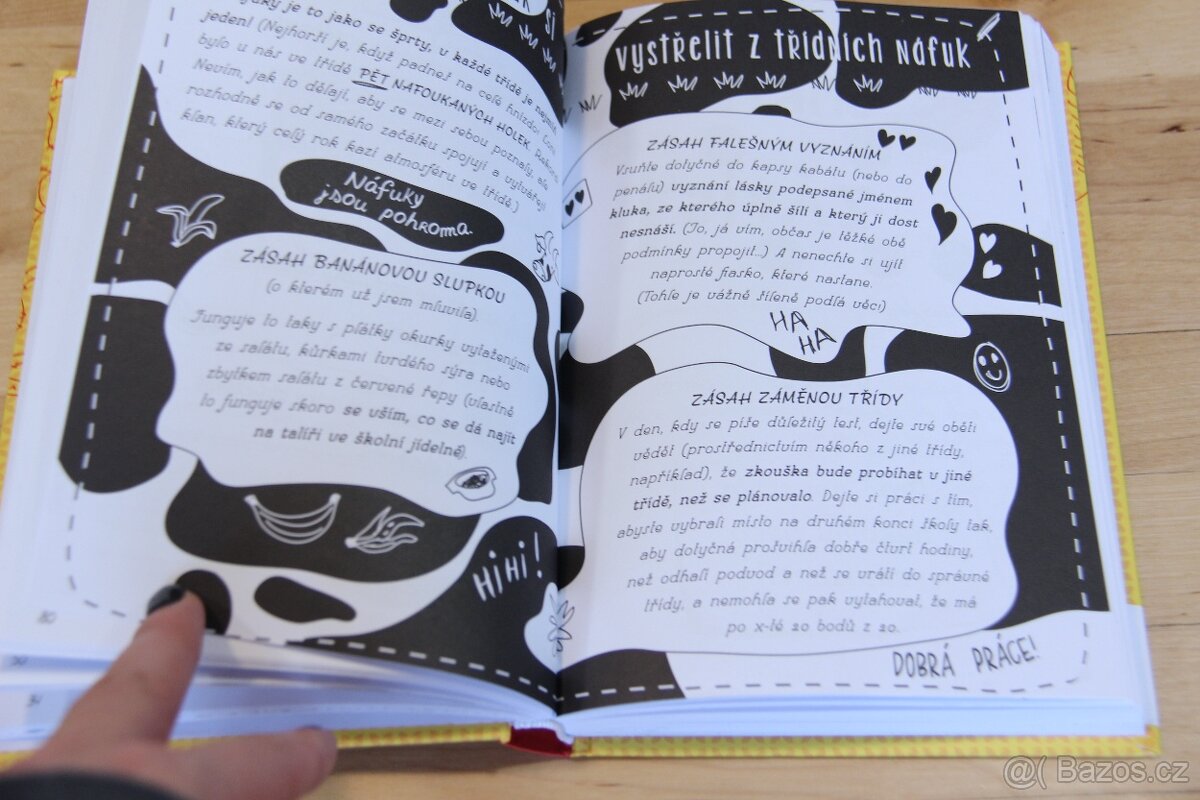 jak si
áfuky je to jako se šprty, v každé třídě je nejmíň
jeden! (Nejhorší je, když padneš na celé hnízdo! Loni
bylo u nás ve třídě PĚT NAFOUKANÝCH HOLEK.
Nevím, jak to dělají, aby se mezi sebou poznaly, ale
rozhodně se od samého začátku spojují a vytvářejí
klan, který celý rok kazí atmosféru ve třídě.)
Náfuky
jsou pohroma.
ZÁSAH BANÁNOVOU SLUPKOU
(o kterém už jsem mluvila).
Funguje to taky s plátky okurky vytaženými
ze salátu, kůrkami tvrdého sýra nebo
zbytkem salátu z červené řepy (vlastně
to funguje skoro se vším, co se dá najít
na talíři ve školní jídelně).
HiHi!
80
vystřelit z třídních náfuk
ZÁSAH FALEŠNÝM VYZNÁNÍM
Vsuňte dotyčné do kapsy kabátu (nebo do
penálu) vyznání lásky podepsané jménem
kluka, ze kterého úplně šílí a který ji dost
nesnáší. (Jo, já vím, občas je těžké obě
podmínky propojit...) A nenechte si ujít
naprosté fiasko, které nastane.
(Tohle je vážně šíleně podlá věc!)
HA
HA
ZÁSAH ZÁMĚNOU TŘÍDY
V den, kdy se píše důležitý test, dejte své oběti
vědět (prostřednictvím někoho z jiné třídy,
například), že zkouška bude probíhat v jiné
třídě, než se plánovalo. Dejte si práci s tím,
abyste vybrali místo na druhém konci školy tak,
aby dotyčná prošvihla dobře čtvrt hodiny,
než odhalí podvod a než se vrátí do správné
třídy, a nemohla se pak vytahovat, že má
po x-té 20 bodů z 20.
DOBRÁ PRÁCE!
@( Bazos.cz